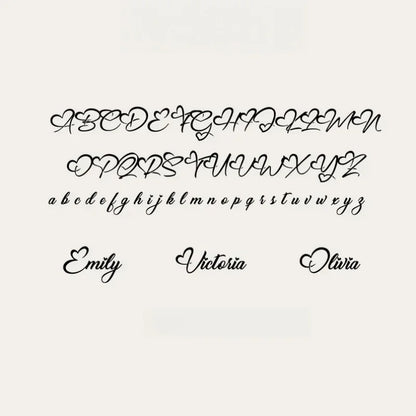 ABCDEFGHIJKLMN
OPQRSTUVWXYZ
abcdefghijklmnopqrstuvwxyz
Emily Victoria Olivia